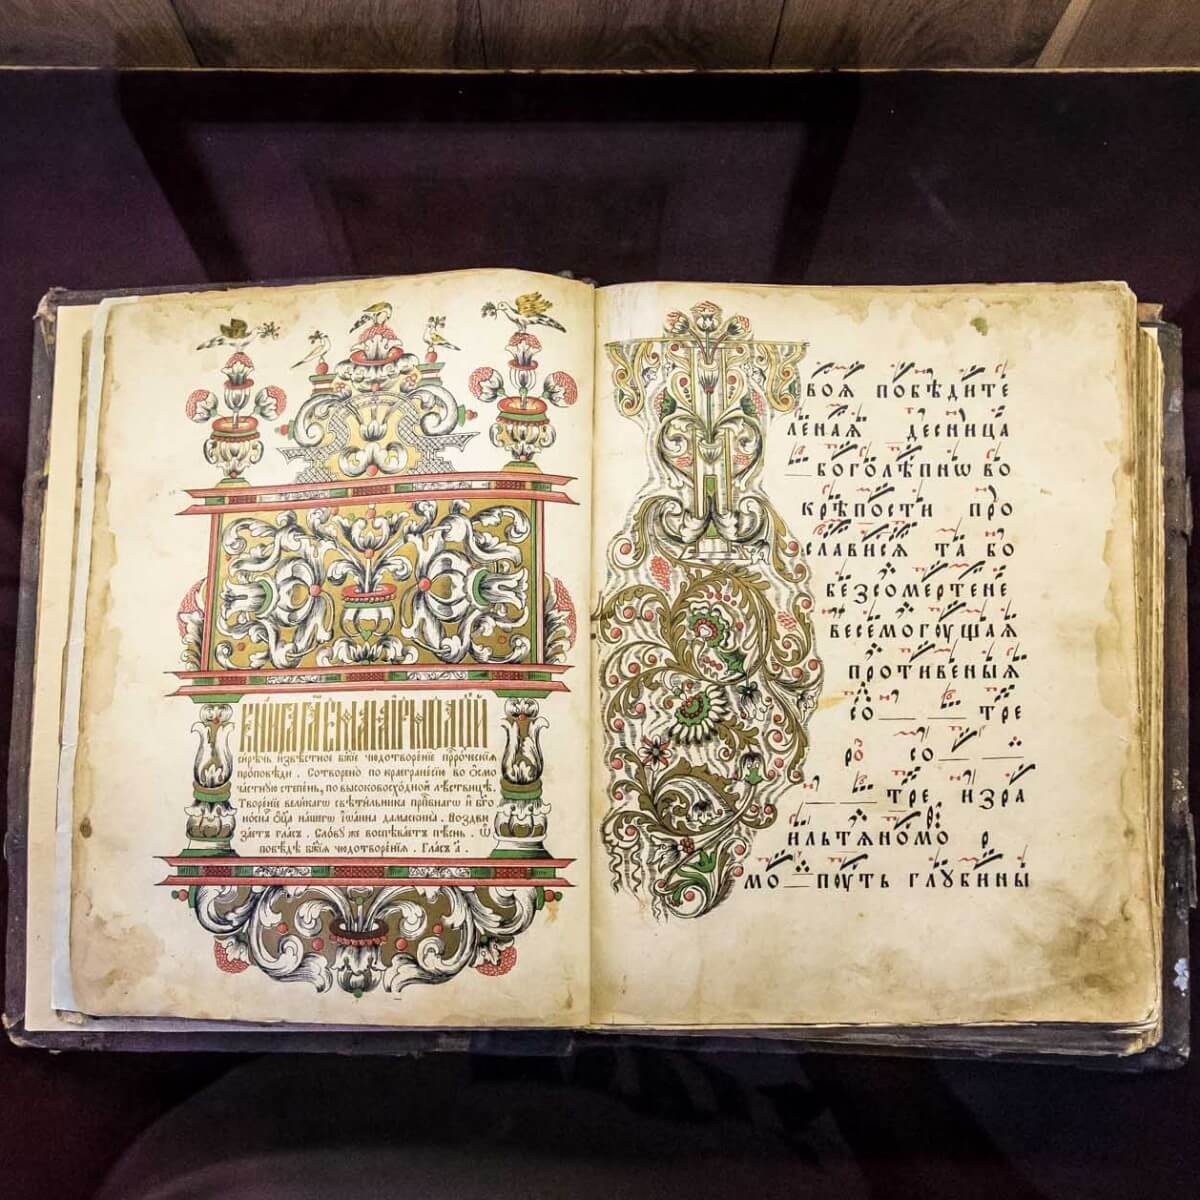 сирѣчь извѣстное бжїе чюдотворенїе прⷪ҇рческїѧ
проповѣди . Сотворено по краегранесїю во ѻ҆смо
частную степень, по высоковосходной лѣствицѣ.
Творенїе великагѡ свѣтильника прпⷣбнагѡ и҆ бг҃о
носна ѻ҆ц҃а нашегѡ і҆ѡанна дамаскина . Воздви
заетъ гласъ . Слову же воспѣваетъ пѣснь . ѡ҆
побѣдѣ бж҃їѧ чюдотворенїѧ . Гласъ а҃ .
Т
воѧ побѣдите
леная десница
боголѣпнѡ во
крѣпости про
слависѧ та бо
безсомертене
весемогущая
противеныѧ
со тре
ро со
тре изра
ильтѧномо р
мо путь глубины